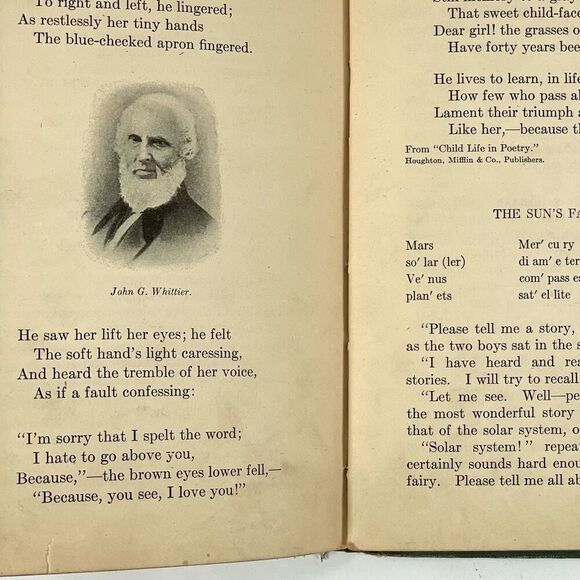 To right and left, he lingered;
As restlessly her tiny hands
The blue-checked apron fingered.
John G. Whittier.
He saw her lift her eyes; he felt
The soft hand's light caressing,
And heard the tremble of her voice,
As if a fault confessing:
"I'm sorry that I spelt the word;
I hate to go above you,
Because,"—the brown eyes lower fell,—
"Because, you see, I love you!"
That sweet child-face
Dear girl! the grasses
Have forty years
He lives to learn, in
How few who pass
Lament their triumph
Like her,—because
From "Child Life in Poetry."
Houghton, Mifflin & Co., Publishers.
THE SUN'S
Mars Mer' cu ry
so' lar (ler) di am' e ter
Ve' nus com' pass
plan' ets sat' el lite
"Please tell me a story,
as the two boys sat in the
"I have heard and
stories. I will try to recall
"Let me see. Well—
the most wonderful story
that of the solar system,
"Solar system!"
certainly sounds hard
fairy. Please tell me all